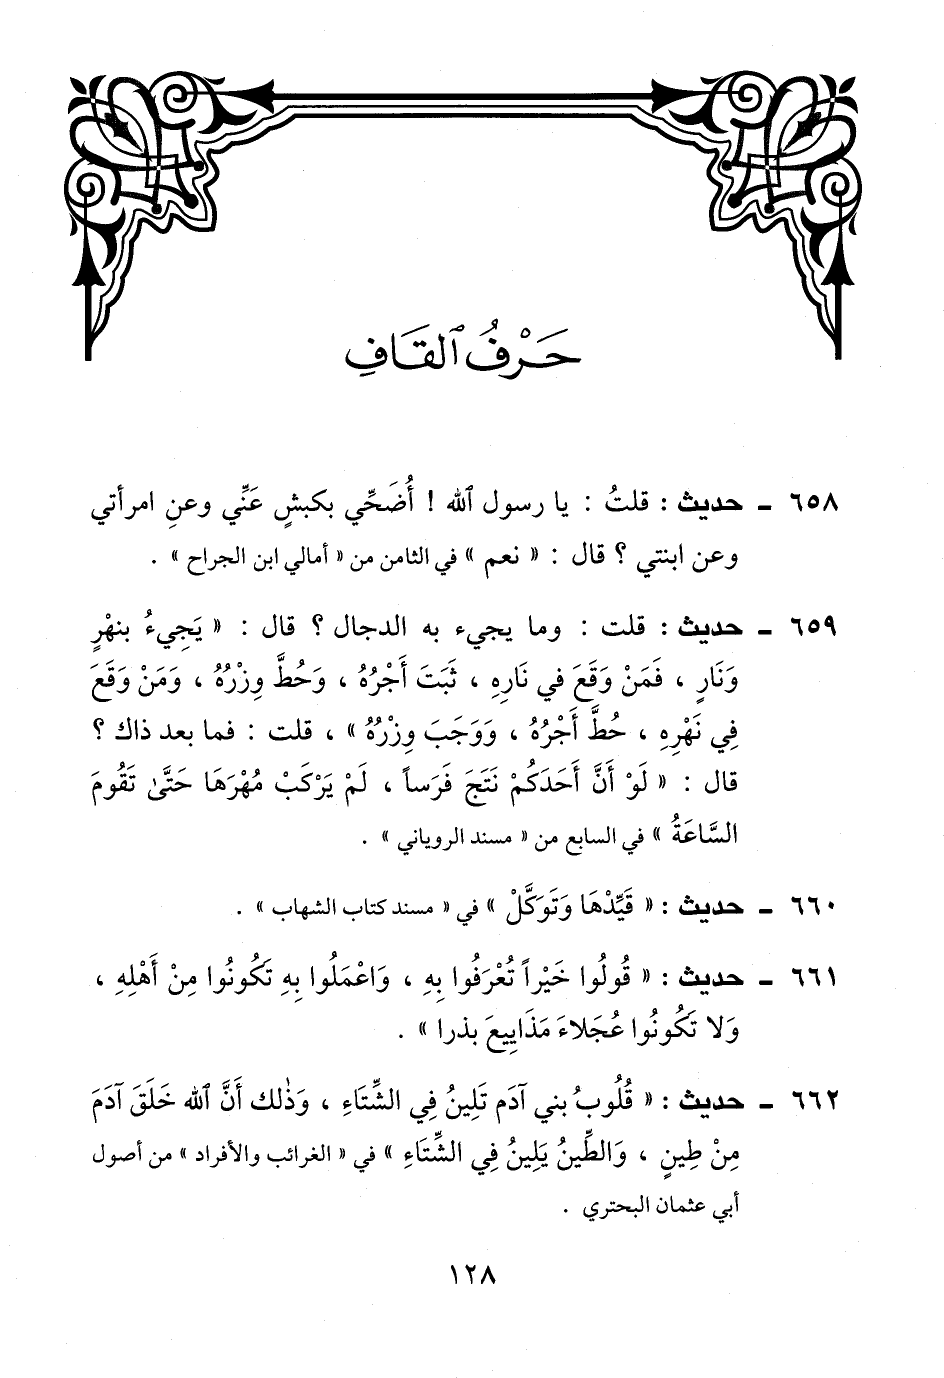 حَرْفُ ٱلقَافِ
٦٥٨ - حديث : قلتُ : يا رسول ٱلله ! أُضَحِّي بكبشٍ عَنِّي وعنِ امرأتي
وعن ابنتي ؟ قال : « نعم » في الثامن من « أمالي ابن الجراح » .
٦٥٩ - حديث : قلت : وما يجيء به الدجال ؟ قال : « يَجِيءُ بنهْرٍ
وَنَارٍ ، فَمَنْ وَقَعَ في نَارِهِ ، ثَبَتَ أَجْرُهُ ، وَحُطَّ وِزْرُهُ ، وَمَنْ وَقَعَ
فِي نَهْرِهِ ، حُطَّ أَجْرُهُ ، وَوَجَبَ وِزْرُهُ » ، قلت : فما بعد ذاك ؟
قال : « لَوْ أَنَّ أَحَدَكُمْ نَتَجَ فَرَساً ، لَمْ يَرْكَبْ مُهْرَهَا حَتَّىٰ تَقُومَ
السَّاعَةُ » في السابع من « مسند الروياني » .
٦٦٠ - حديث : « قَيِّدْهَا وَتَوَكَّلْ » في « مسند كتاب الشهاب » .
٦٦١ - حديث : « قُولُوا خَيْراً تُعْرَفُوا بِهِ ، وَاعْمَلُوا بِهِ تَكُونُوا مِنْ أَهْلِهِ ،
وَلا تَكُونُوا عُجَلاءَ مَذَايِيعَ بذرا » .
٦٦٢ - حديث : « قُلُوبُ بني آدَم تَلِينُ فِي الشِّتَاءِ ، وَذٰلك أَنَّ ٱلله خَلَقَ آدَمَ
مِنْ طِينٍ ، وَالطِّينُ يَلِينُ فِي الشِّتَاءِ » في « الغرائب والأفراد » من أصول
أبي عثمان البحتري .
١٢٨